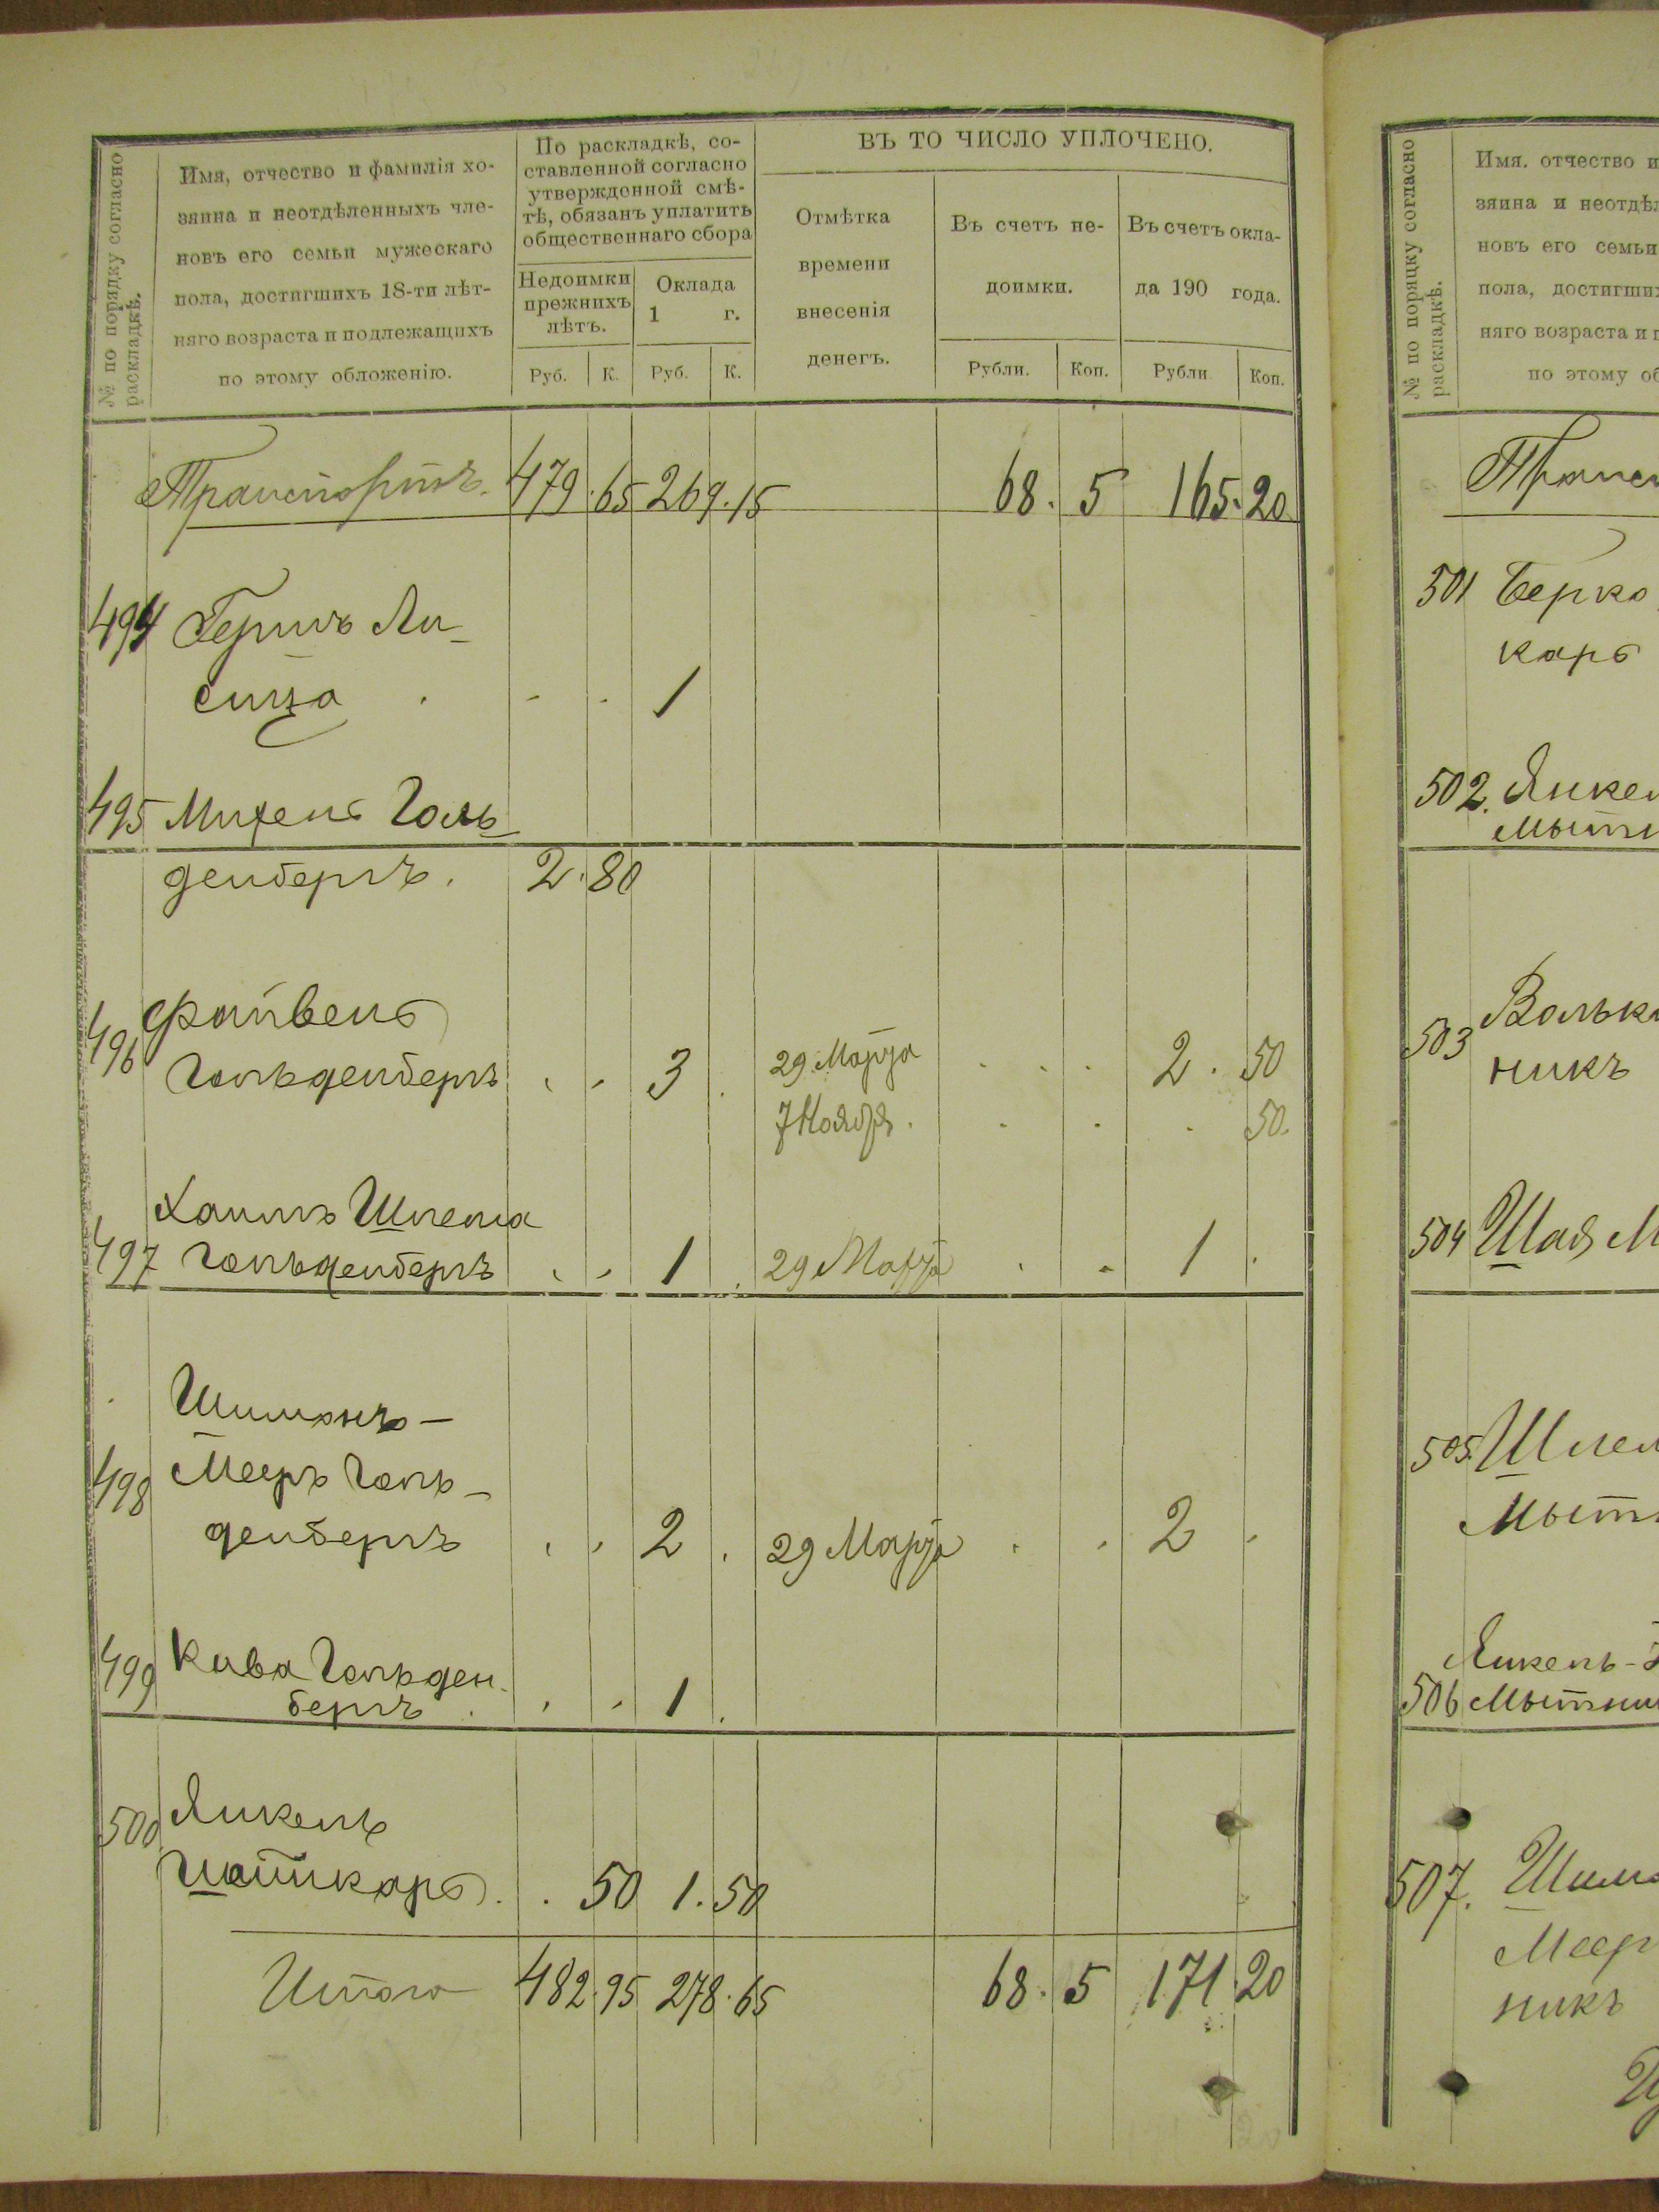 № по порядку согласно
раскладкѣ.
Имя, отчество и фамилія хо-
зяина и неотдѣленныхъ чле-
новъ его семьи мужескаго
пола, достигшихъ 18-ти лѣт-
няго возраста и подлежащихъ
по этому обложенію.
По раскладкѣ, со-
ставленной согласно
утвержденной смѣ-
тѣ, обязанъ уплатить
общественнаго сбора
Недоимки
прежнихъ
лѣтъ.
Оклада
1 г.
Руб. К. Руб. К.
ВЪ ТО ЧИСЛО УПЛОЧЕНО.
Отмѣтка
времени
внесенія
денегъ.
Въ счетъ не-
доимки.
Въ счетъ окла-
да 190 года.
Рубли. Коп. Рубли. Коп.
Транспортъ. 479.65 269.15 68. 5 165.20
494 Гершъ Ли-
сица . - . 1
495 Михель Голь
денбергъ. 2.80
496 Файвель
Гольденбергъ . . 3 . 29 Марта . . . 2 . 50
7 Ноября . . . . 50.
Хаимъ Шлема
497 Гольденбергъ . . 1 . 29 Марта . . 1 .
Шимонъ-
498 Мееръ Голь-
денбергъ . . 2 . 29 Марта . . 2 .
499 Кива Гольден-
бергъ . . . 1 .
500 Янкель
Шайкарь . . 50 1.50
Итого 482.95 278.65 68. 5 171.20
№ по порядку согласно
раскладкѣ.
Имя. отчество и
зяина и неотдѣл
новъ его семьи
пола, достигши
няго возраста и п
по этому об
Транс
501 Берко
карь
502. Янкел
Мытн
503 Вольк
никъ
504 Шая М
505. Шлем
Мытн
Янкель-
506 Мытни
507. Шимо
Меер
никъ